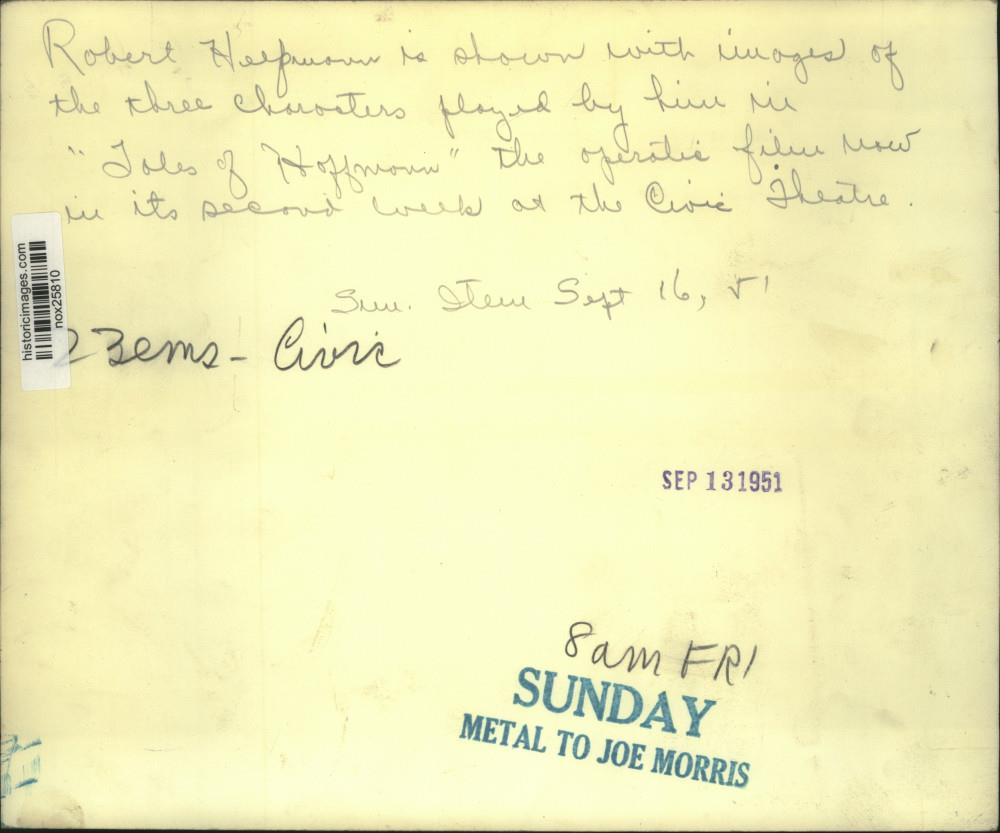 Robert Helpmann is shown with images of
the three characters played by him in
"Tales of Hoffmann" the operatic film now
in its second week at the Civic Theatre.
Sun. Item Sept 16, 51
23ems - Civic
historicimages.com
nox25810
SEP 13 1951
8am FRI
SUNDAY
METAL TO JOE MORRIS